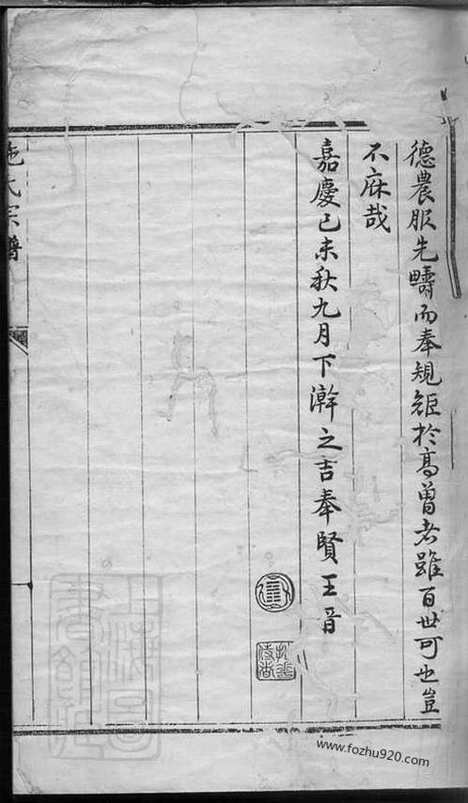 德農服先疇而奉規矩於高曾者雖百世可也豈
不庥哉
嘉慶己未秋九月下澣之吉奉賢王晋
施氏宗譜
上海圖書館藏
www.fozhu920.com